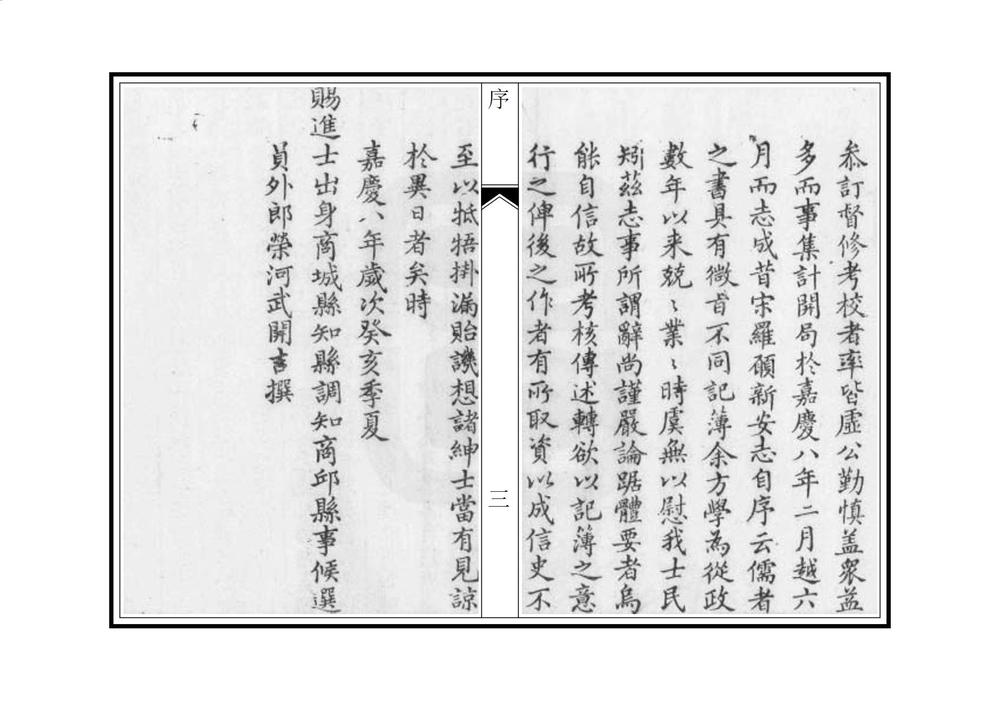 叅訂督修考校者率皆虛公勤慎盖衆益
多而事集計開局於嘉慶八年二月越六
月而志成昔宋羅願新安志自序云儒者
之書具有微旨不同記簿余方學為從政
數年以来兢〻業〻時虞無以慰我士民
矧茲志事所謂辭尚謹嚴論踞體要者烏
能自信故所考核傳述轉欲以記簿之意
行之俾後之作者有所取資以成信史不
序
三
至以牴牾掛漏貽譏想諸紳士當有見諒
於異日者矣時
嘉慶八年歲次癸亥季夏
賜進士出身商城縣知縣調知商邱縣事候選
員外郎榮河武開吉撰